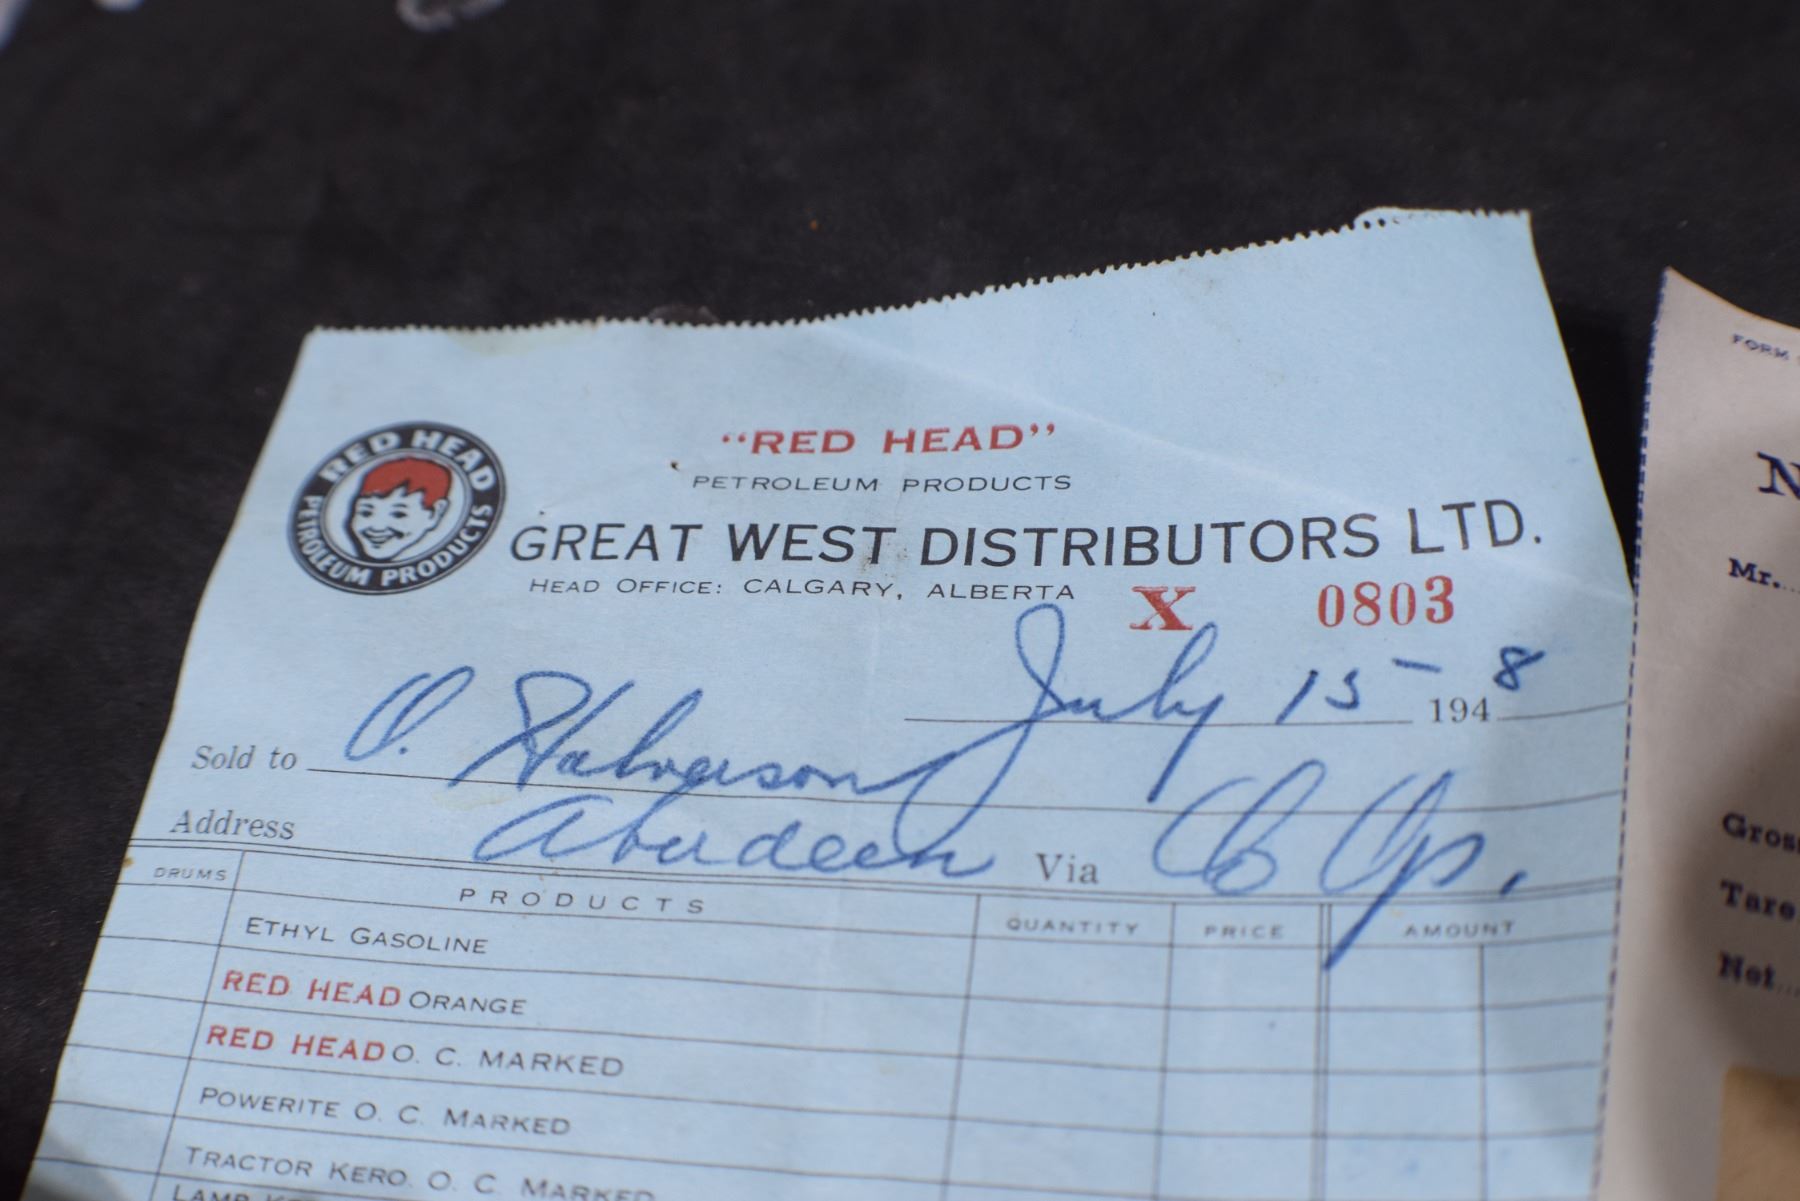 RED HEAD
PETROLEUM PRODUCTS
"RED HEAD"
PETROLEUM PRODUCTS
GREAT WEST DISTRIBUTORS LTD.
HEAD OFFICE: CALGARY, ALBERTA
X 0803
July 15 - 1948
Sold to O. Halverson
Address Aberdeen Via
DRUMS PRODUCTS QUANTITY PRICE AMOUNT
ETHYL GASOLINE
RED HEAD ORANGE
RED HEAD O. C. MARKED
POWERITE O. C. MARKED
TRACTOR KERO. O. C. MARKED
LAMP
FORM
N
Mr.
Gross
Tare
Net